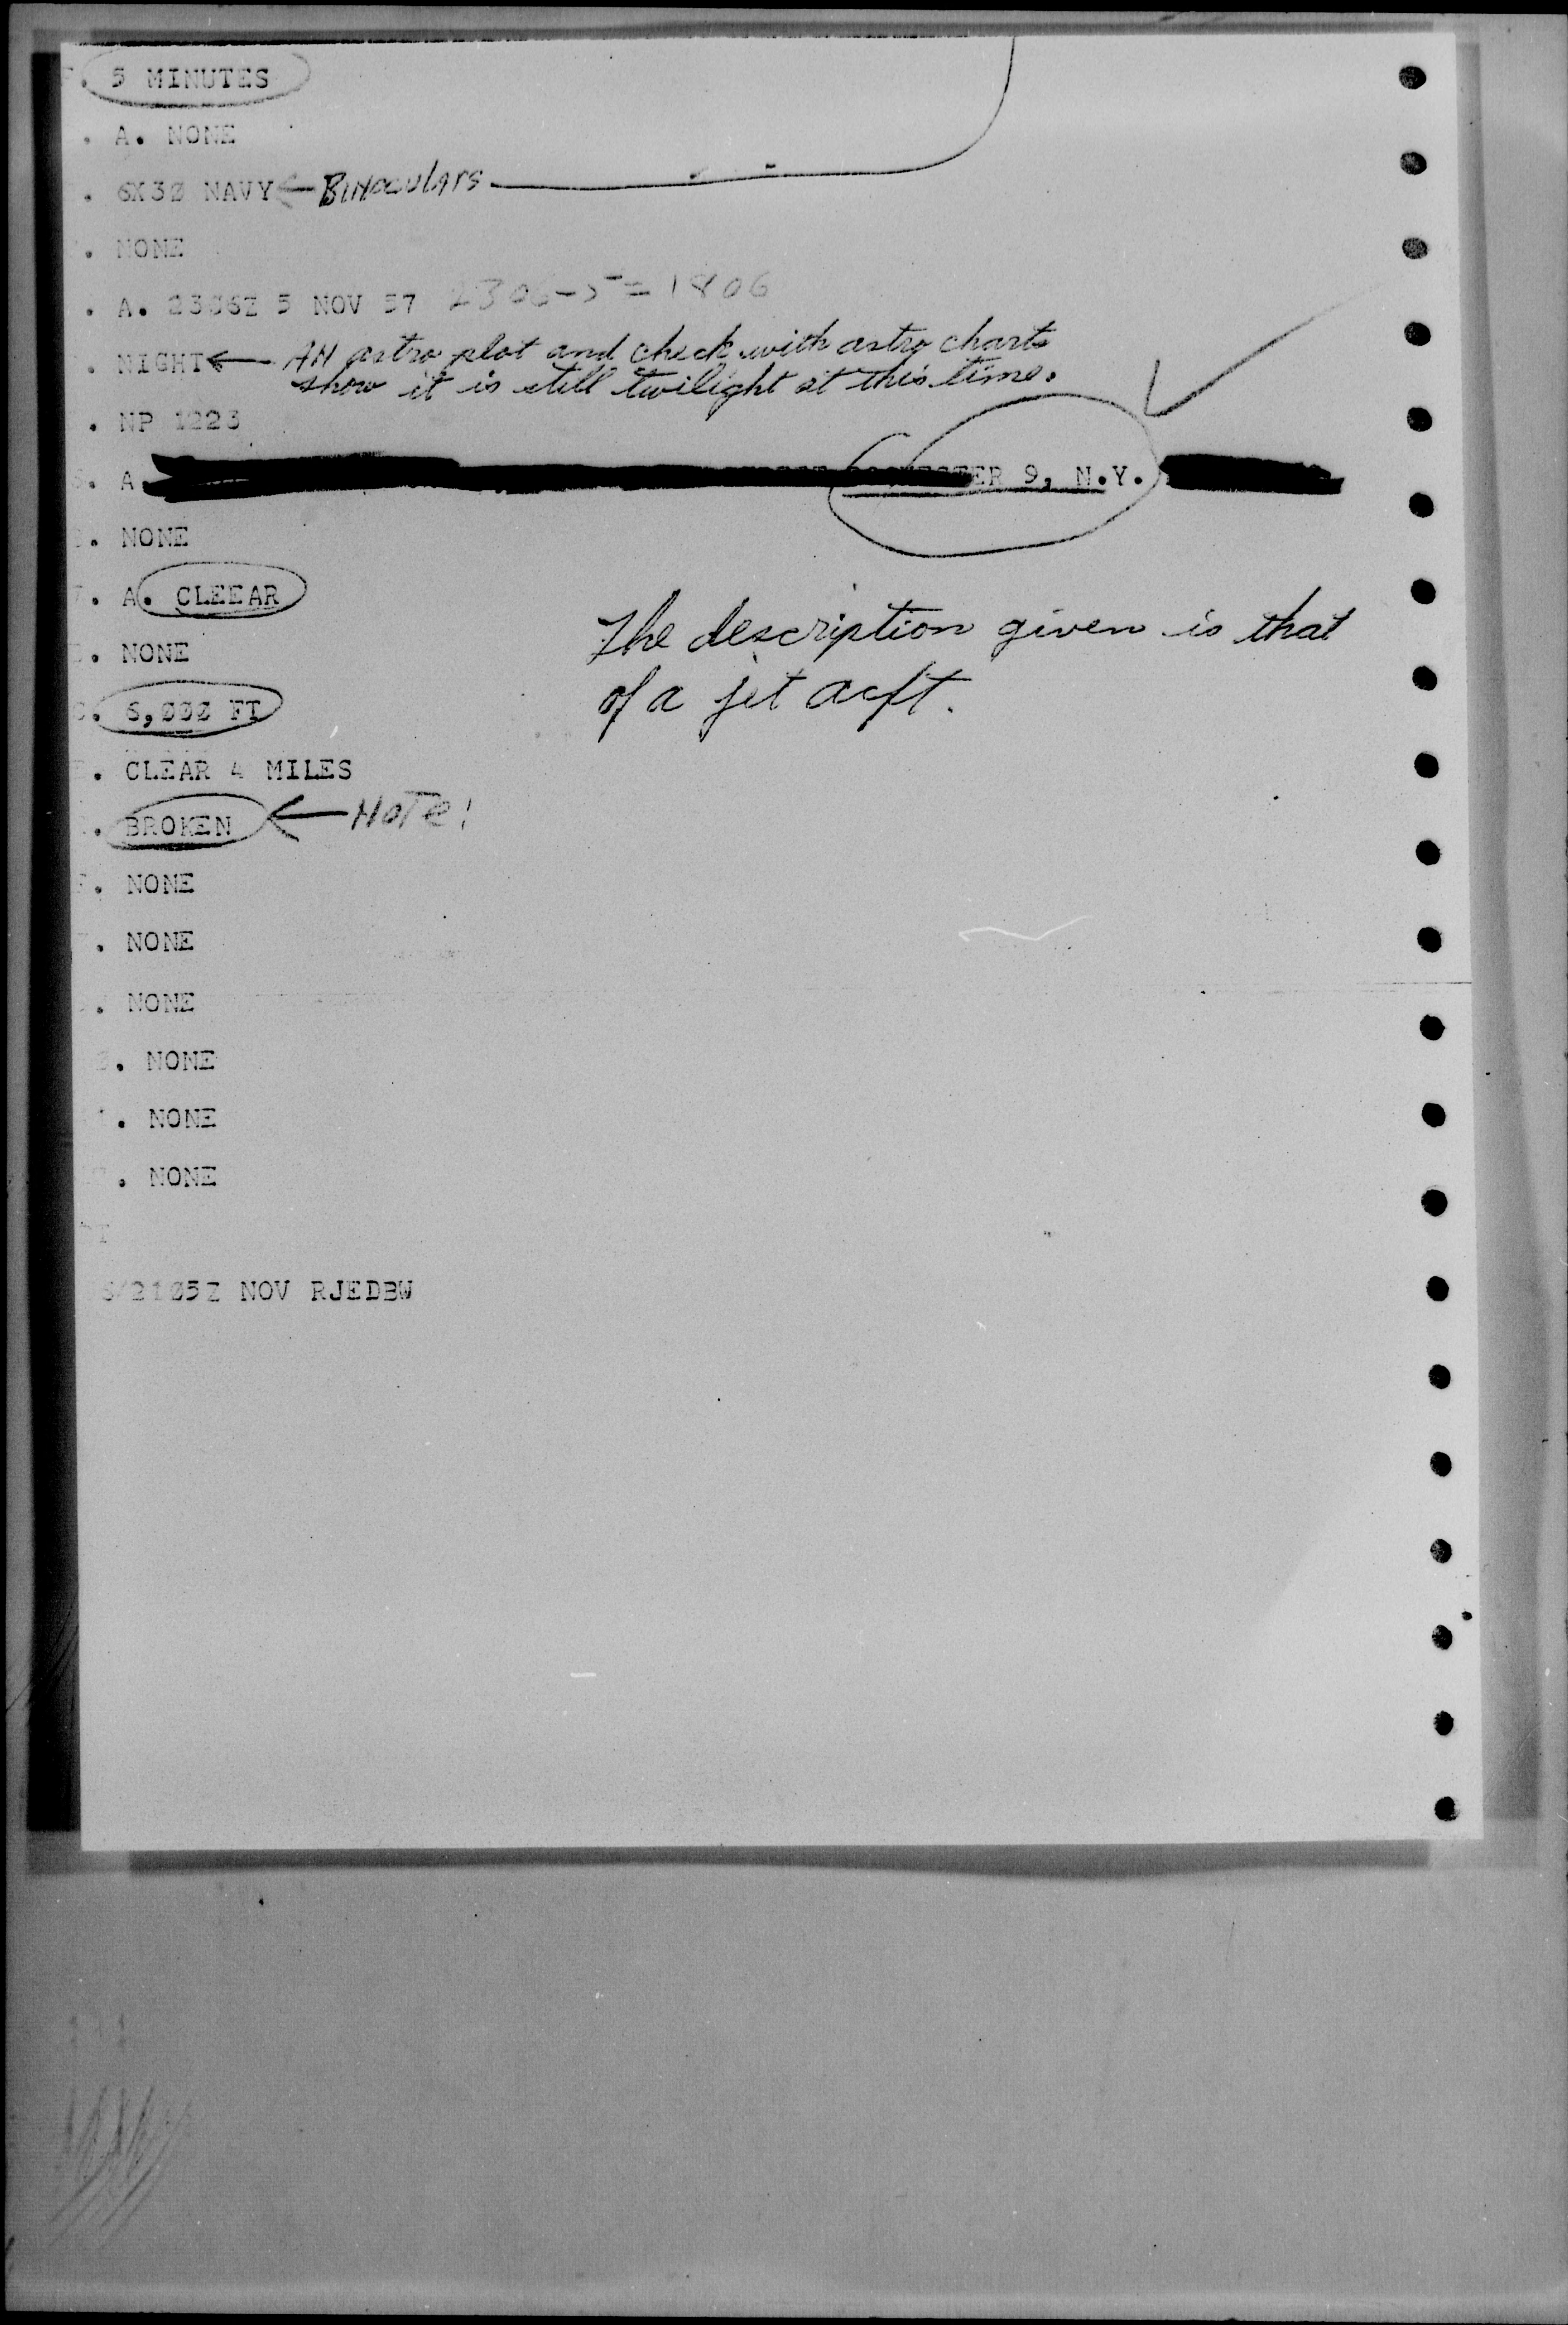 . 5 MINUTES
. A. NONE
. 6X30 NAVY ← Binoculars
. NONE
. A. 2306Z 5 NOV 57 2306-5=1806
. NIGHT ← An astro plot and check with astro charts
show it is still twilight at this time.
. NP 1223
. A. ER 9, N.Y.
. NONE
. A. CLEEAR
. NONE
. 6,000 FT
. CLEAR 4 MILES
. BROKEN ← NOTE!
. NONE
. NONE
. NONE
. NONE
. NONE
. NONE
T
/2105Z NOV RJEDBW
The description given is that
of a jet acft.